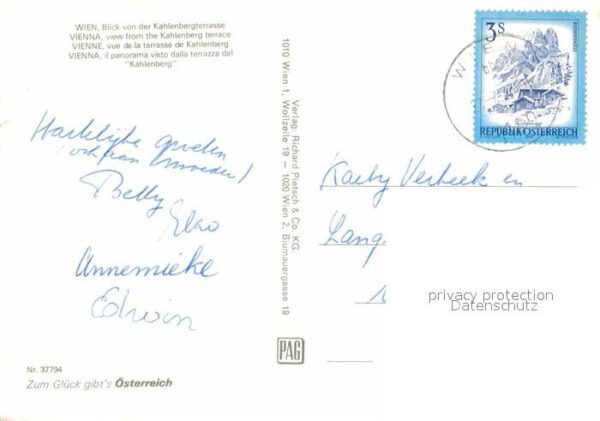 WIEN, Blick von der Kahlenbergterrasse
VIENNA, view from the Kahlenberg terrace
VIENNE, vue de la terrasse de Kahlenberg
VIENNA, il panorama visto dalla terrazza del
"Kahlenberg"
Hartelijke groeten
(ook van
Betty
Elko
Annemieke
Edwin
Nr. 37794
Zum Glück gibt's Österreich
Verlag: Richard Pietsch & Co. KG
1010 Wien 1, Wollzeile 19 — 1020 Wien 2, Blumauergasse 19
PAG
3S
REPUBLIK ÖSTERREICH
WIE
Verbeek en
Lang
privacy protection
Datenschutz